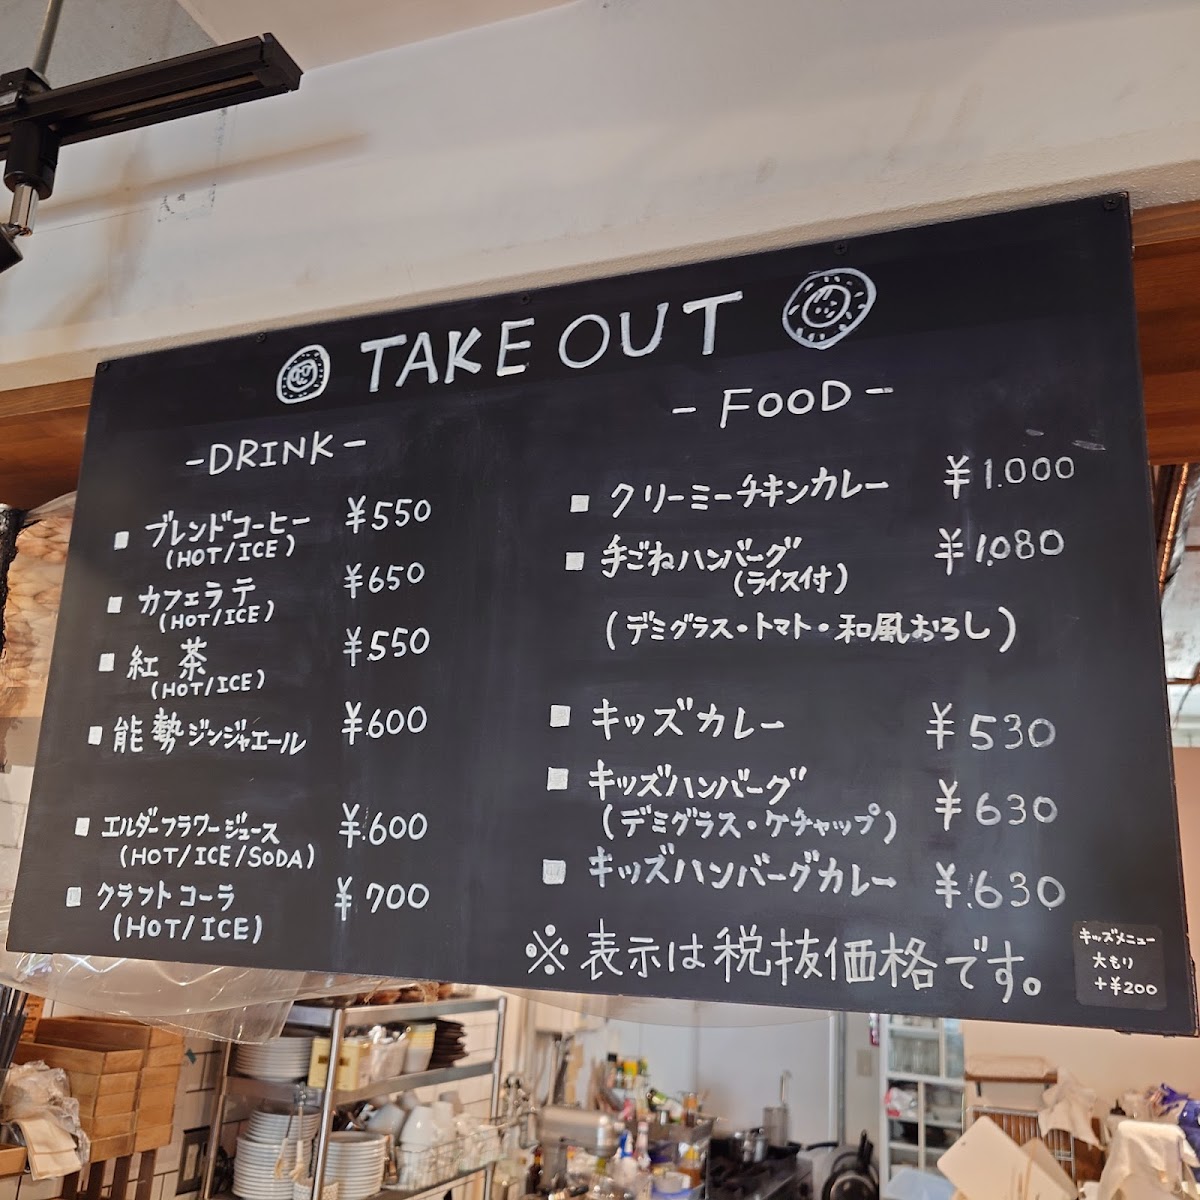 TAKE OUT
-DRINK-
■ ブレンドコーヒー ¥550
(HOT/ICE)
■ カフェラテ ¥650
(HOT/ICE)
■ 紅茶 ¥550
(HOT/ICE)
■ 能勢ジンジャエール ¥600
■ エルダーフラワージュース ¥600
(HOT/ICE/SODA)
■ クラフトコーラ ¥700
(HOT/ICE)
- FOOD -
■ クリーミーチキンカレー ¥1.000
■ 手ごねハンバーグ ¥1,080
(ライス付)
(デミグラス・トマト・和風おろし)
■ キッズカレー ¥530
■ キッズハンバーグ ¥630
(デミグラス・ケチャップ)
■ キッズハンバーグカレー ¥630
※表示は税抜価格です。
キッズメニュー
大もり
+¥200